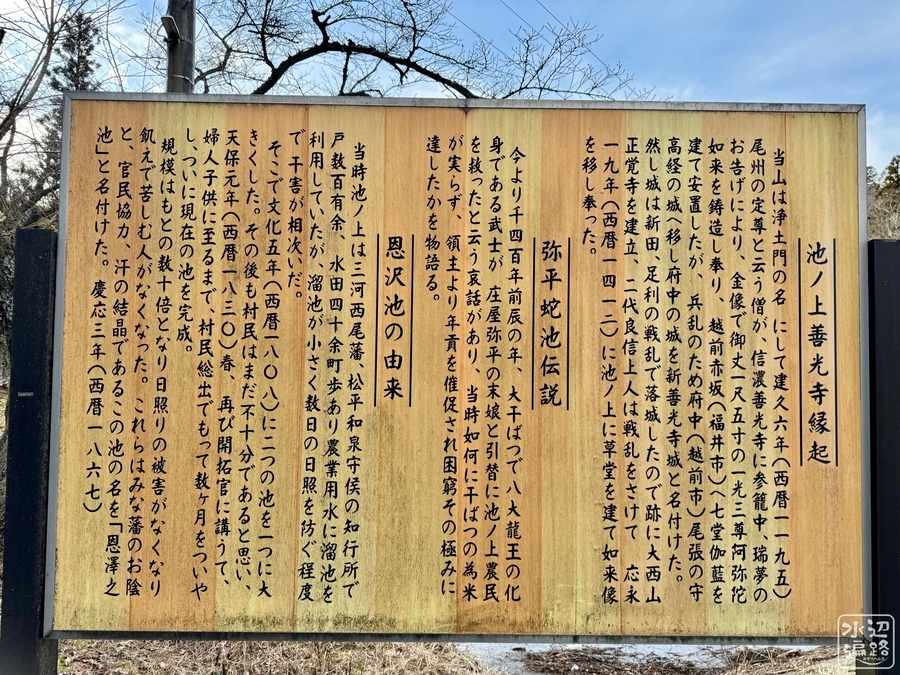 池ノ上善光寺縁起
当山は浄土門の名刹にして建久六年(西暦一一九五)
尾州の定尊と云う僧が、信濃善光寺に参籠中、瑞夢の
お告げにより、金像で御丈一尺五寸の一光三尊阿弥陀
如来を鋳造し奉り、越前赤坂(福井市)へ七堂伽藍を
建て安置したが、兵乱のため府中(越前市)尾張の守
高経の城へ移し府中の城を新善光寺城と名付けた。
然し城は新田、足利の戦乱で落城したので跡に大西山
正覚寺を建立、二代良信上人は戦乱をさけて 応永
一九年(西暦一四一二)に池ノ上に草堂を建て如来像
を移し奉った。
弥平蛇池伝説
今より千四百年前辰の年、大干ばつで八大龍王の化
身である武士が 庄屋弥平の末娘と引替に池ノ上農民
を救ったと云う哀話があり、当時如何に干ばつの為米
が実らず、領主より年貢を催促され困窮その極みに
達したかを物語る。
恩沢池の由来
当時池ノ上は三河西尾藩、松平和泉守侯の知行所で
戸数百有余、水田四十余町歩あり農業用水に溜池を
利用していたが、溜池が小さく数日の日照を防ぐ程度
で干害が相次いだ。
そこで文化五年(西暦一八〇八)に二つの池を一つに大
きくした。その後も村民はまだ不十分であると思い、
天保元年(西暦一八三〇)春、再び開拓官に講うて、
婦人子供に至るまで、村民総出でもって数ヶ月をついや
し、ついに現在の池を完成。
規模はもとの数十倍となり日照りの被害がなくなり
飢えで苦しむ人がなくなった。これらはみな藩のお陰
と、官民協力、汗の結晶であるこの池の名を「恩澤之
池」と名付けた。慶応三年(西暦一八六七)
水辺遍路
みずべへんろ